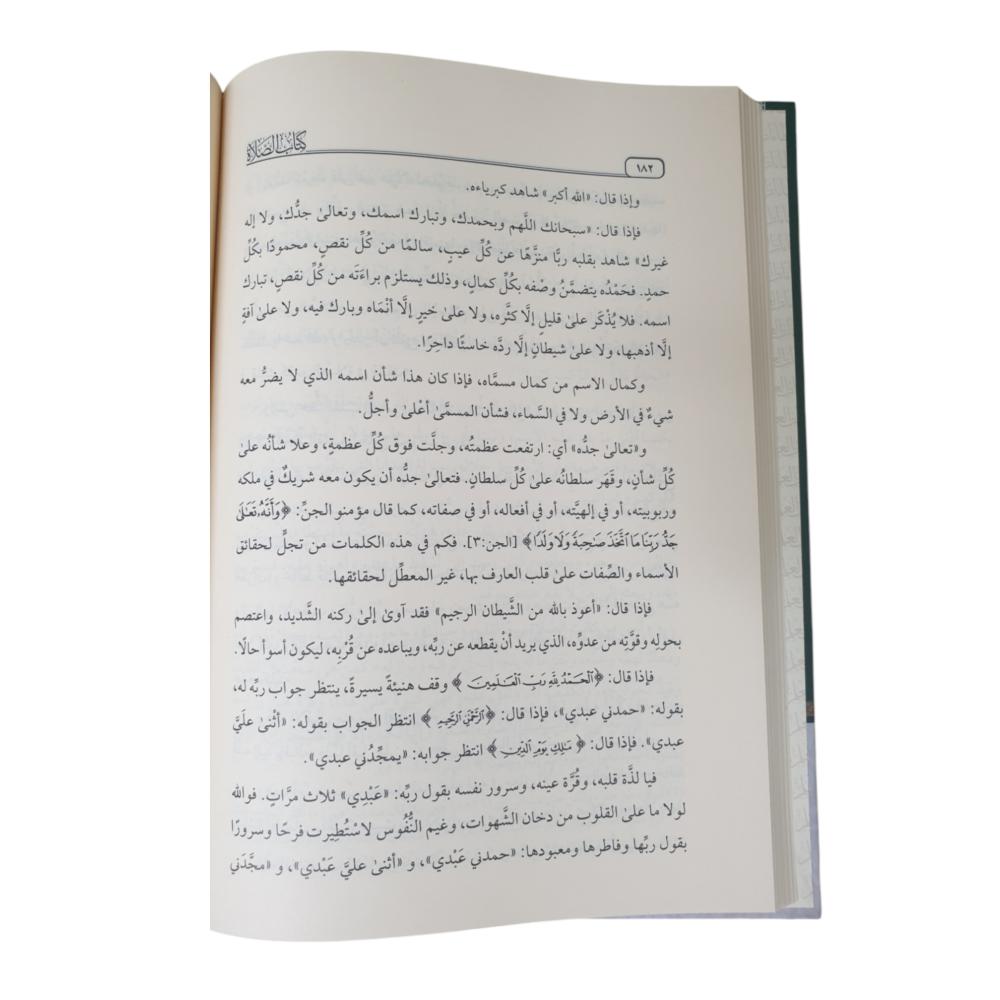 كتاب الصلاة
١٨٢
وإذا قال: «الله أكبر» شاهد كبرياءه.
فإذا قال: «سبحانك اللَّهم وبحمدك، وتبارك اسمك، وتعالىٰ جدُّك، ولا إله
غيرك» شاهد بقلبه ربًّا منزَّهًا عن كُلِّ عيبٍ، سالمًا من كُلِّ نقصٍ، محمودًا بكُلِّ
حمدٍ. فحَمْدُه يتضمَّنُ وصْفه بكُلِّ كمالٍ، وذلك يستلزم براءَتَه من كُلِّ نقصٍ، تبارك
اسمه. فلا يُذْكَر علىٰ قليلٍ إلَّا كثَّره، ولا علىٰ خيرٍ إلَّا أنْمَاه وبارك فيه، ولا علىٰ آفةٍ
إلَّا أذهبها، ولا علىٰ شيطانٍ إلَّا ردَّه خاسئًا داحِرًا.
وكمال الاسم من كمال مسمَّاه، فإذا كان هذا شأن اسمه الذي لا يضرُّ معه
شيءٌ في الأرض ولا في السَّماء، فشأن المسمَّىٰ أعْلىٰ وأجلُّ.
و«تعالىٰ جدُّه» أي: ارتفعت عظمتُه، وجلَّت فوق كُلِّ عظمةٍ، وعلا شأنُه علىٰ
كُلِّ شأنٍ، وقَهَر سلطانُه علىٰ كُلِّ سلطانٍ. فتعالىٰ جدُّه أن يكون معه شريكٌ في ملكه
وربوبيته، أو في إلهيَّته، أو في أفعاله، أو في صفاته، كما قال مؤمنو الجنِّ: ﴿وَأَنَّهُۥ تَعَٰلَىٰ
جَدُّ رَبِّنَا مَا ٱتَّخَذَ صَٰحِبَةً وَلَا وَلَدًا﴾ [الجن:٣]. فكم في هذه الكلمات من تجلٍّ لحقائق
الأسماء والصِّفات علىٰ قلب العارف بها، غير المعطِّل لحقائقها.
فإذا قال: «أعوذ بالله من الشَّيطان الرجيم» فقد آوىٰ إلىٰ ركنه الشَّديد، واعتصم
بحوله وقوَّتِه من عدوِّه، الذي يريد أنْ يقطعه عن ربِّه، ويباعده عن قُرْبِه، ليكون أسوأ حالًا.
فإذا قال: ﴿ٱلْحَمْدُ لِلَّهِ رَبِّ ٱلْعَٰلَمِينَ﴾ وقف هنيئةً يسيرةً، ينتظر جواب ربِّه له،
بقوله: «حمدني عبدي»، فإذا قال: ﴿ٱلرَّحْمَٰنِ ٱلرَّحِيمِ﴾ انتظر الجواب بقوله: «أثْنىٰ علَيَّ
عبدي». فإذا قال: ﴿مَٰلِكِ يَوْمِ ٱلدِّينِ﴾ انتظر جوابه: «يمجِّدُني عبدي».
فيا لذَّة قلبه، وقُرَّة عينه، وسرور نفسه بقول ربِّه: «عَبْدِي» ثلاث مرَّاتٍ. فوالله
لولا ما علىٰ القلوب من دخان الشَّهوات، وغيم النُّفُوس لاسْتُطِيرت فرحًا وسرورًا
بقول ربِّها وفاطرها ومعبودها: «حمدني عَبْدي»، و «أثنىٰ عليَّ عَبْدي»، و «مجَّدَني